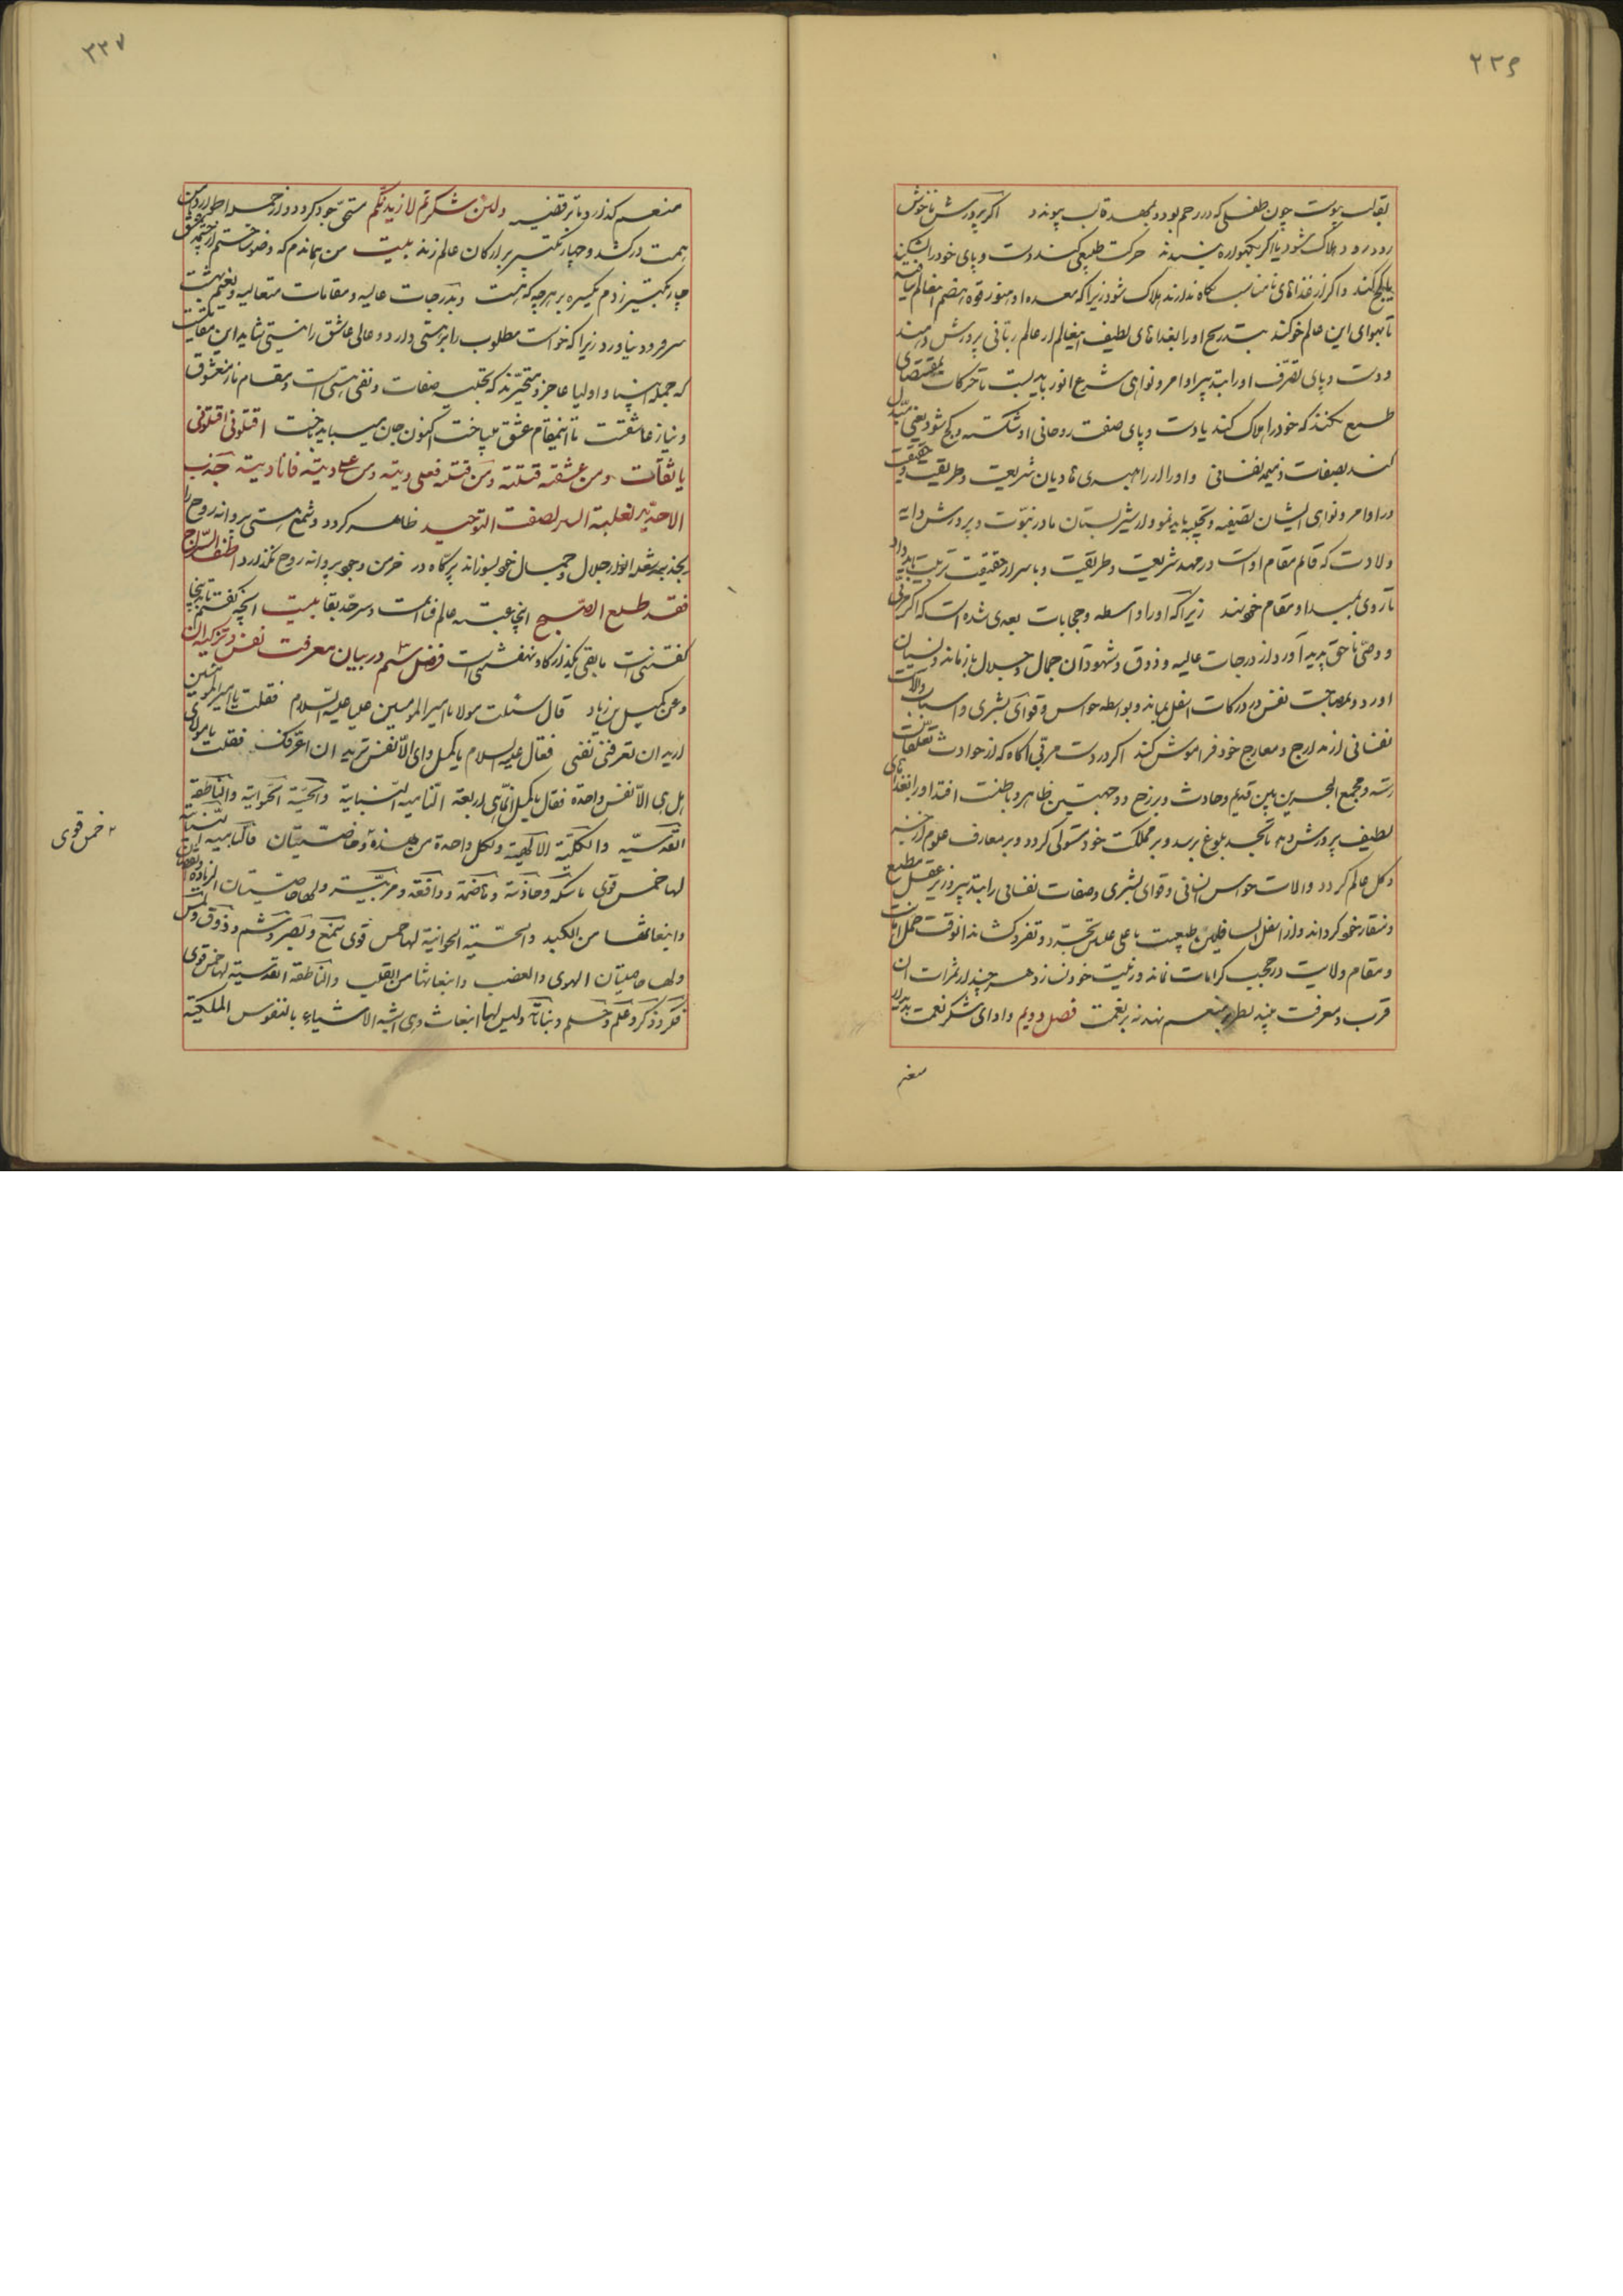 ۲۳۶
بقالب پیوست چون طفلی که در رحم بود و بمهد قالب پیوندد اکر پرورش ناخوش
زود زود هلاک شود یا اکر بکهواره نبندند حرکت طبیعی کند دست و پای خود را بشکند
یا کج کند و اکر از غذاهای نامناسب نکاه ندارند هلاک شود زیرا که معده او هنوز قوه هضم انعالم نیافته
تا بهوای این عالم خو کند بتدریج او را بغذاهای لطیف اینعالم از عالم ربانی پرورش دهند
و دست و پای تصرف او را بتدبیر اوامر و نواهی شرع انور باید بست تا حرکات بمقتضای
طبع نکند که خود را هلاک کند یا دست و پای صفت روحانی او شکسته و کج شود یعنی مبدل
کند بصفات ذمیمه نفسانی و او را از راهبری هادیان شریعت و طریقت و حقیقت
در اوامر و نواهی ایشان تصفیه و تحلیه باید نمود و از شیر پستان مادر نبوت و پرورش دایه
ولادت که قائم مقام اوست در مهد شریعت و طریقت و باسرار حقیقت تربیت باید داد
تا روی بمبدا و مقام خود نهد زیرا که او را واسطه و حجابات بعدی شده است که اکر مربی
و وصی ناحق پدید آورد و از درجات عالیه و ذوق و شهود ان جمال و جلال باز ماند و نسیان
آورد و بمصاحبت نفس در درکات اسفل بماند و بواسطه حواس و قوای بشری و اسباب و آلات
نفسانی از مدارج و معارج خود فراموش کند اکر در دست مربی آکاه که از حوادث تعلقات
رسته و مجمع البحرین بین قدیم و حادث و برزخ دو جهتین ظاهر و باطنست افتد او را بغذاهای
لطیف پرورش دهد تا بحد بلوغ برسد و بر مملکت خود مستولی کردد و بر معارف علوم
و کل عالم کردد و الات حواس انسانی و قوای بشری و صفات نفسانی را بتدبیر وزیر عقل مطیع
و منقاد خود کرداند و از اسفل السافلین طبیعت باعلی علیین تجرد و تفرد کشاند انوقت حمل امانت
و مقام ولایت در حجب کرامات نماند و زینت خود نسازد و هر چند از ثمرات ان
قرب و معرفت بیند نظر بر منعم نهد نه بر نعمت فصل دویم و ادای شکر نعمت
منعم
۲۳۷
منعم کذارد تا بر قضیه ولئن شکرتم لازیدنکم مستحق جود کردد و از
همت درکشد و چار تکبیر بر ارکان عالم زند بیت من هماندم که وضو ساختم از چشمه عشق
چار تکبیر زدم یکسره بر هر چه که هست و بدرجات عالیه و مقامات متعالیه و نعیم بهشت
سر فرود نیاورد زیرا که خواست مطلوب را بر هستی دارد و عالی عاشق را نیستی شاید این
که جمله انبیا و اولیا عاجز و متحیرند که تخلیه صفات و نفی هستی است و مقام ناز معشوق
و نیاز عاشقست تا اینمقام عشق میباخت اکنون جان میباید باخت اقتلونی اقتلونی
یا ثقات و من عشقته قتلته و من قتلته فعلی دیته و من علی دیته فانا دیته جذب
الاحدیة لغلبة السر لصفت التوحید ظاهر کردد و شمع هستی پروانه روح را
بجذبه شعله انوار جلال و جمال خود بسوزاند پر کاه در خرمن وجود پروانه روح نکذارد اطف السراج
فقد طلع الصبح اینجا عتبه عالم فناست و سرحد بقا بیت آنچه کفتم تا بینجا
کفتنیست مابقی بکذر که او بنهفتنیست فصل سیم در بیان معرفت نفس و تزکیه ان
و عن کمیل بن زیاد قال سئلت مولانا امیر المومنین علی علیه السلام فقلت یا امیر المومنین
ارید ان تعرفنی نفسی فقال علیه السلام یا کمیل و ای الانفس ترید ان اعرفک فقلت یا مولای
هل هی الا نفس واحدة فقال یا کمیل انما هی اربعة النامیة النباتیة والحسیة الحیوانیة والناطقة
القدسیة والکلیة الالهیة ولکل واحدة من هذه وخاصیتان فالنامیة النباتیة
لها خمس قوی ماسکة و جاذبة و هاضمة و دافعة و مربیة ولها خاصیتان الزیادة والنقصان
وانبعاثها من الکبد والحسیة الحیوانیة لها خمس قوی سمع و بصر و شم و ذوق و لمس
ولها خاصیتان الهوی والغضب وانبعاثها من القلب والناطقة القدسیة لها خمس قوی
فکر و ذکر و علم و حلم و نباهة ولیس لها انبعاث وهی اشبه الاشیاء بالنفوس الملکیة
خمس قوی